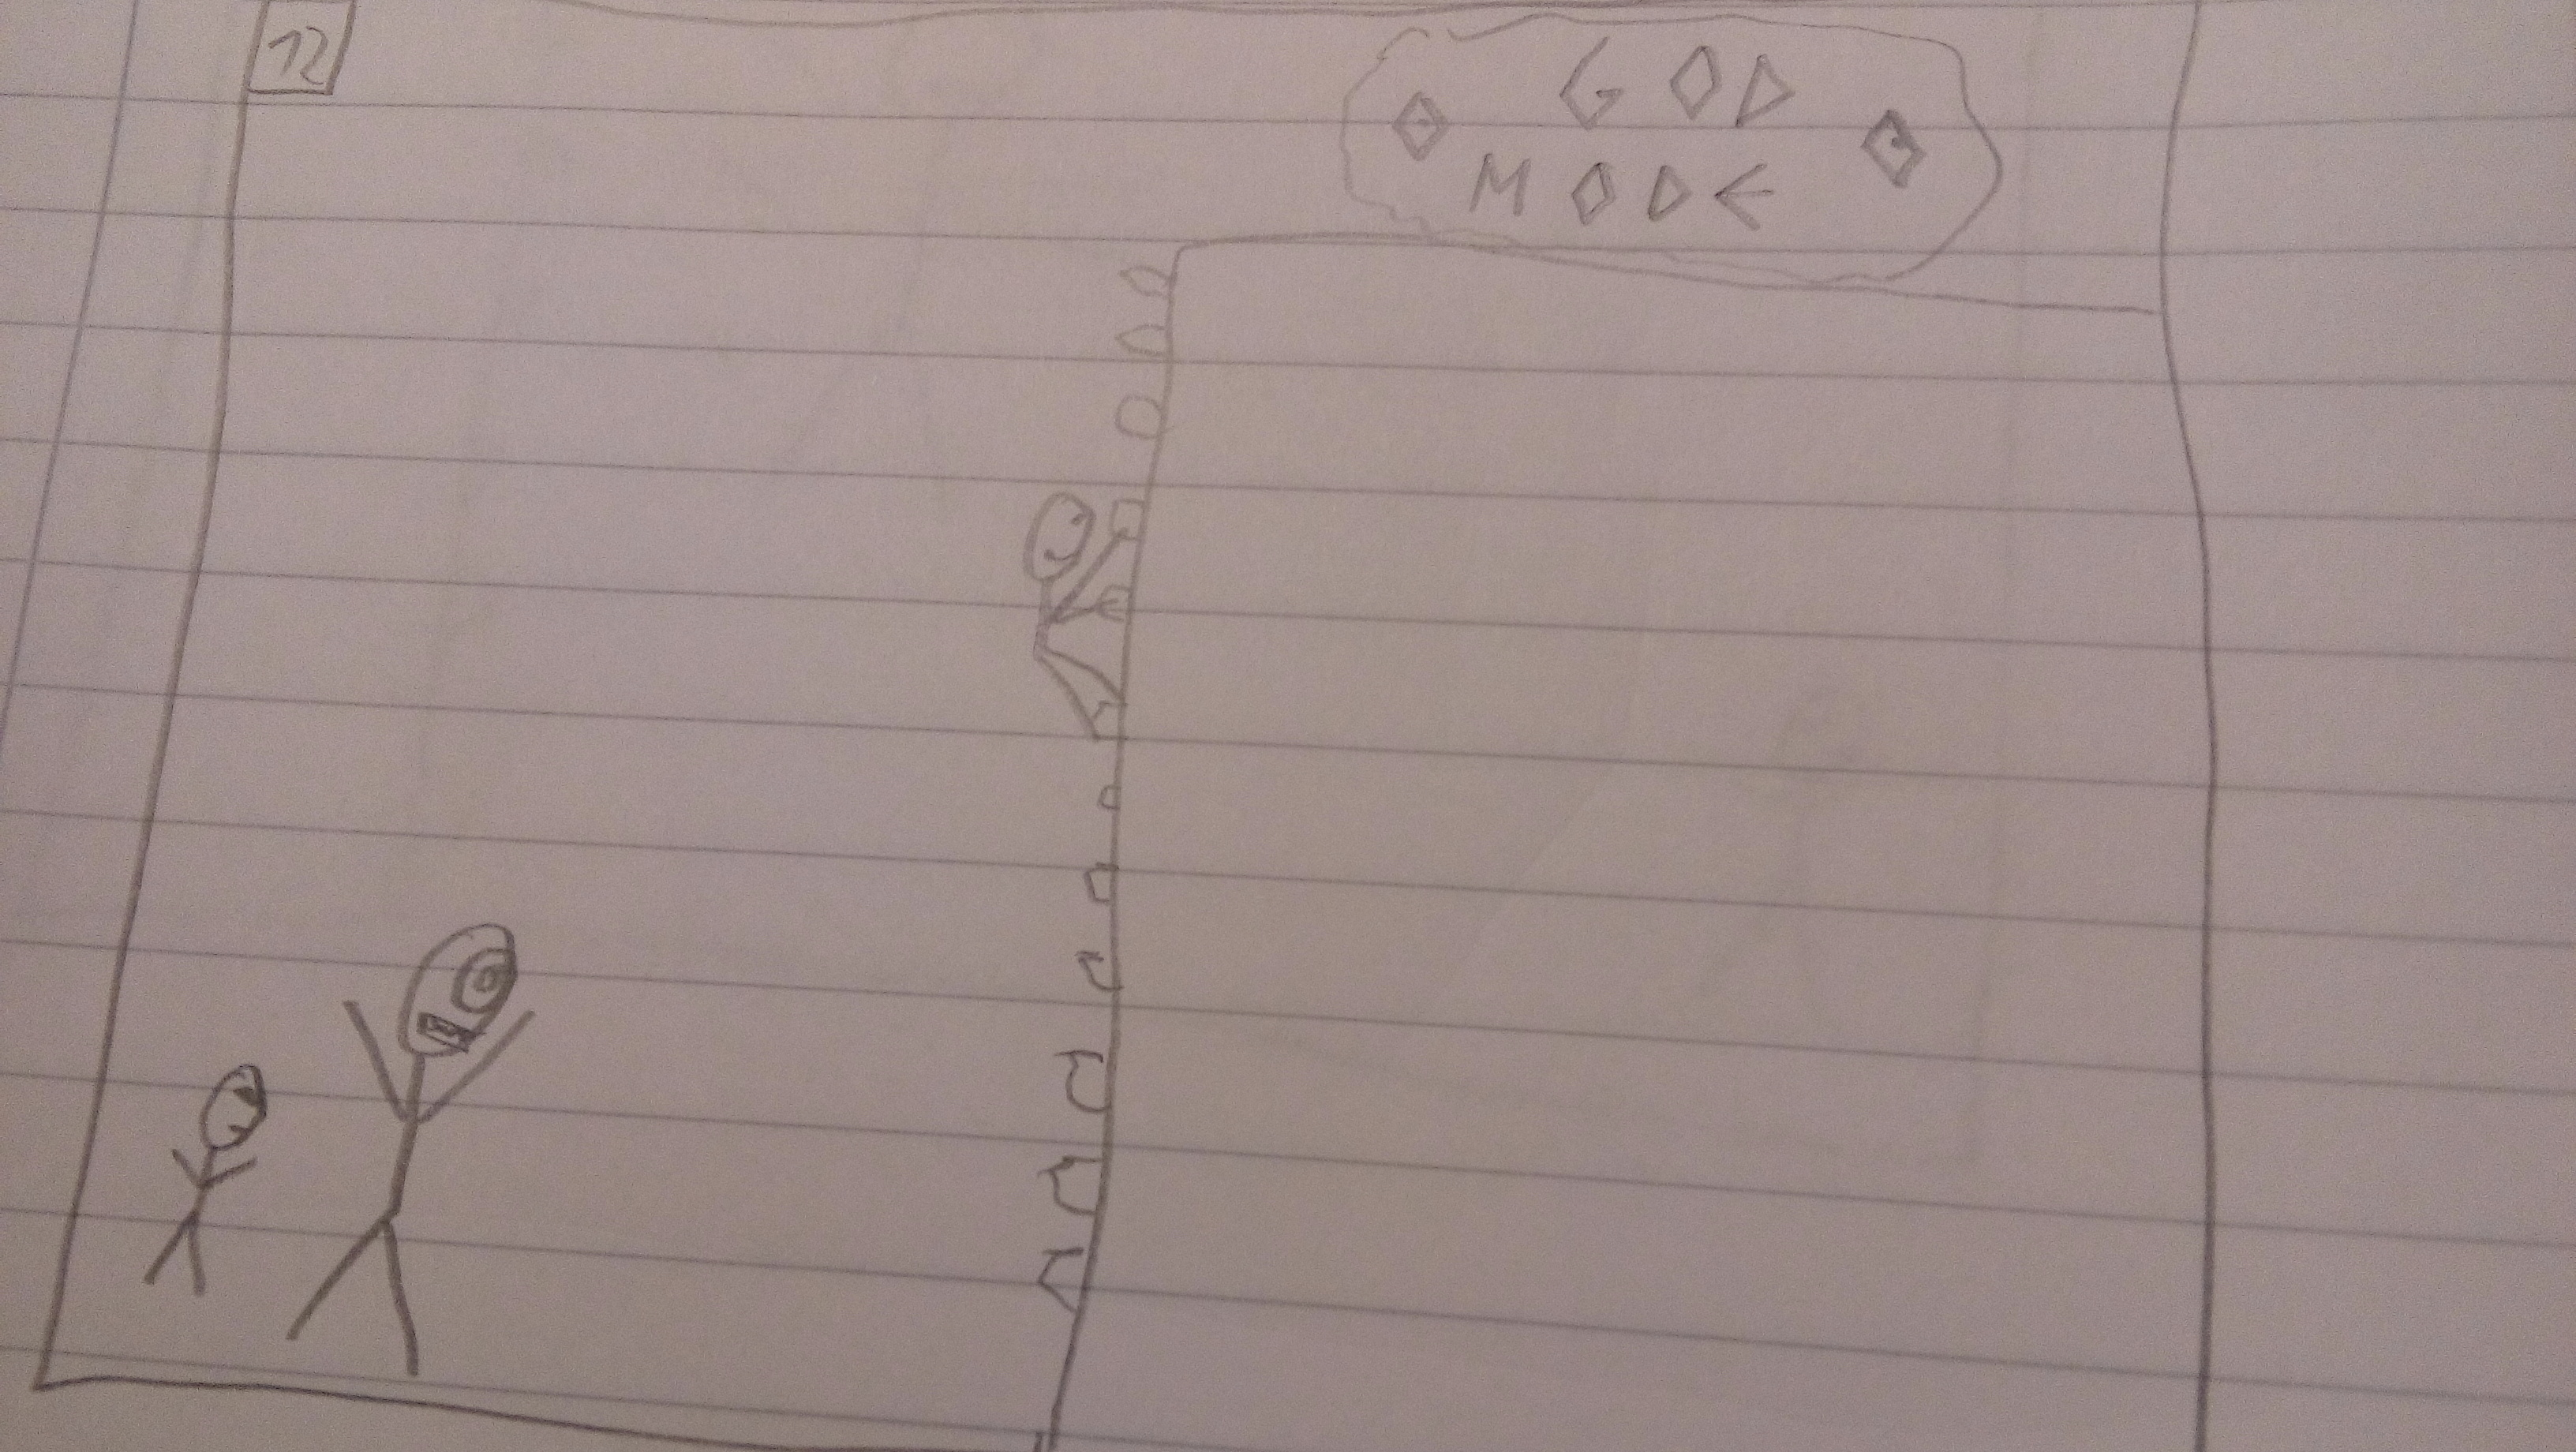 12
GOD
MODE